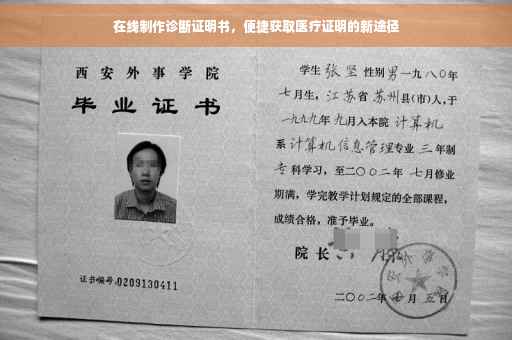 在线制作诊断证明书，便捷获取医疗证明的新途径
西安外事学院
毕业证书
证书编号:0209130411
学生 张坚 性别 男 一九八〇年
七月生，江苏省 苏州县(市)人，于
一九九九年 九月入本院 计算机
系 计算机信息管理专业 三 年制
专科学习，至二〇〇二年 七月修业
期满，学完教学计划规定的全部课程，
成绩合格，准予毕业。
院长
二〇〇二年 月 五日